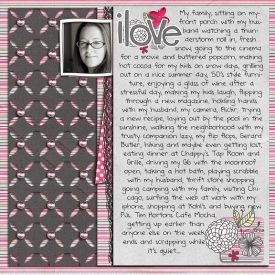 i love
My family, sitting on my
front porch with my hus
band watching a thun
derstorm roll in, fresh
snow, going to the cinema
for a movie and buttered popcorn, making
hot cocoa for my kids on snow days, grilling
out on a nice summer day, 50's style furni
ture, enjoying a glass of wine after a
stressful day, making my kids laugh, flipping
through a new magazine, holding hands
with my husband, my camera, Flickr, trying
a new recipe, laying out by the pool in the
sunshine, walking the neighborhood with my
trusty companion Izzy, my flip flops, Gerard
Butler, hiking and maybe even getting lost,
eating dinner at Chappy's Tap Room and
Grille, driving my G6 with the moonroof
open, taking a hot bath, playing scrabble
with my husband, thrift store shopping,
going camping with my family, visiting Chi
cago, surfing the web at work with my
iphone, shopping at Kohl's and buying new
PJs, Tim Hortons Cafe Mocha,
getting up earlier than
anyone else on the week
ends and scrapping while
it's quiet...